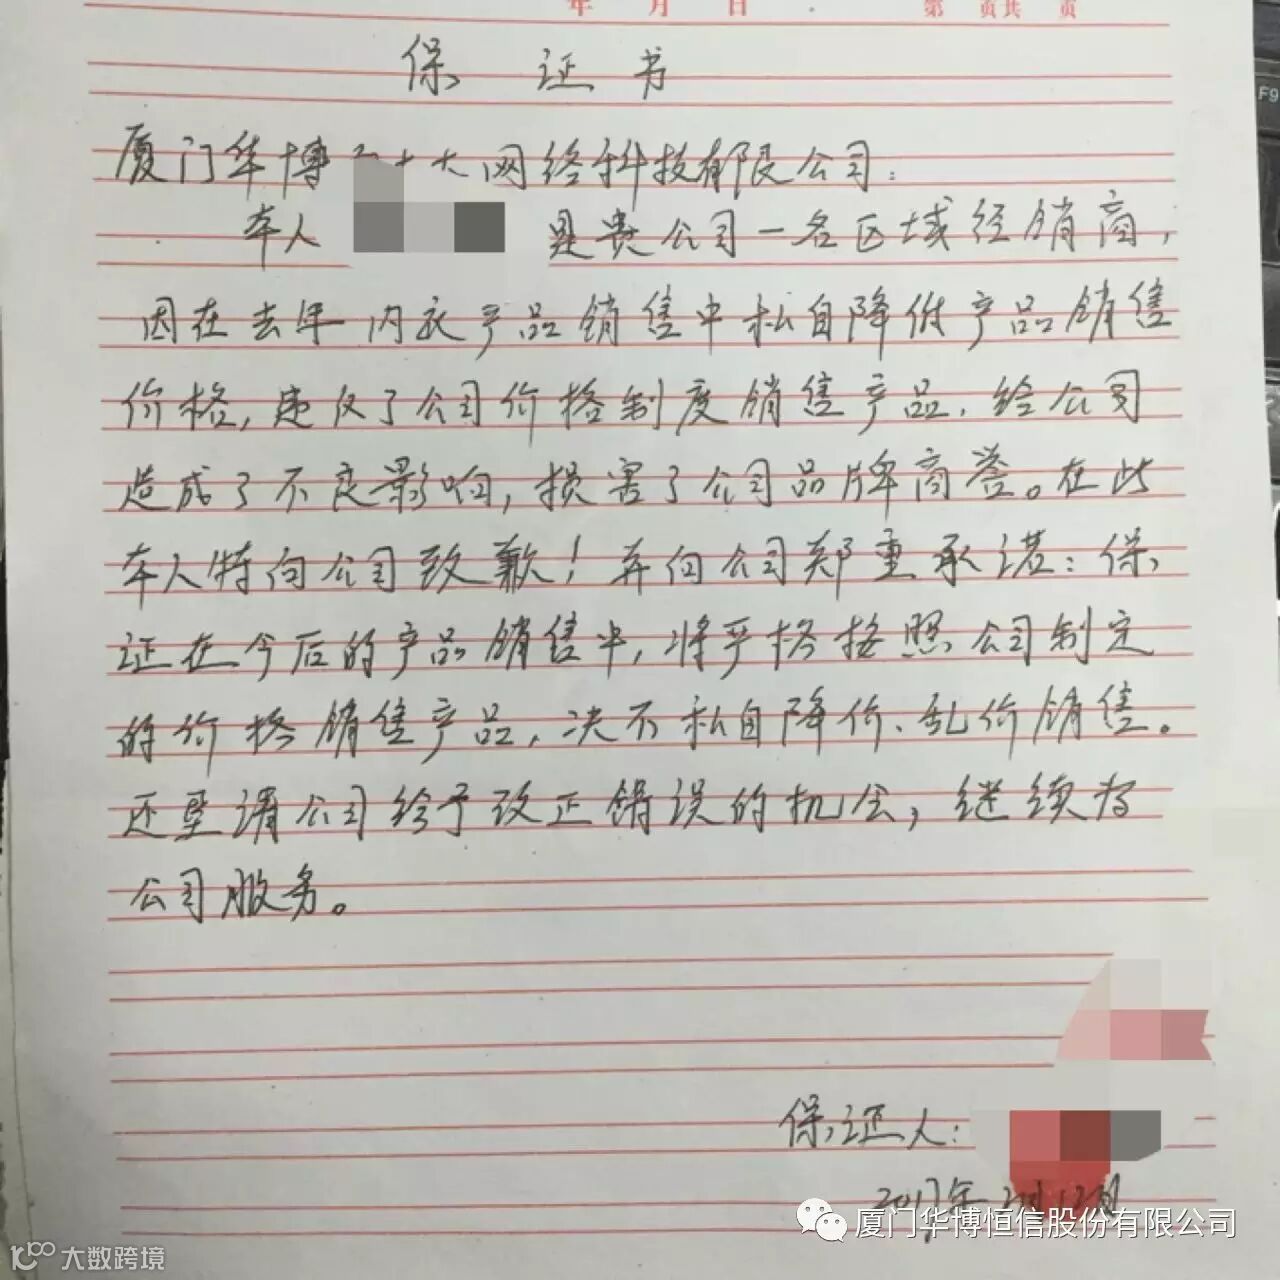 年 月 日 第 页共 页
保 证 书
F9
厦门华博 大网络科技有限公司：
本人 是贵公司一名区域经销商，
因在去年内衣产品销售中私自降低产品销售
价格，违反了公司价格制度销售产品，给公司
造成了不良影响，损害了公司品牌商誉。在此
本人特向公司致歉！并向公司郑重承诺：保
证在今后的产品销售中，将严格按照公司制定
的价格销售产品，决不私自降价、乱价销售。
还望请公司给予改正错误的机会，继续为
公司服务。
保证人：
2017年2月12日
厦门华博恒信股份有限公司
K100 大数跨境